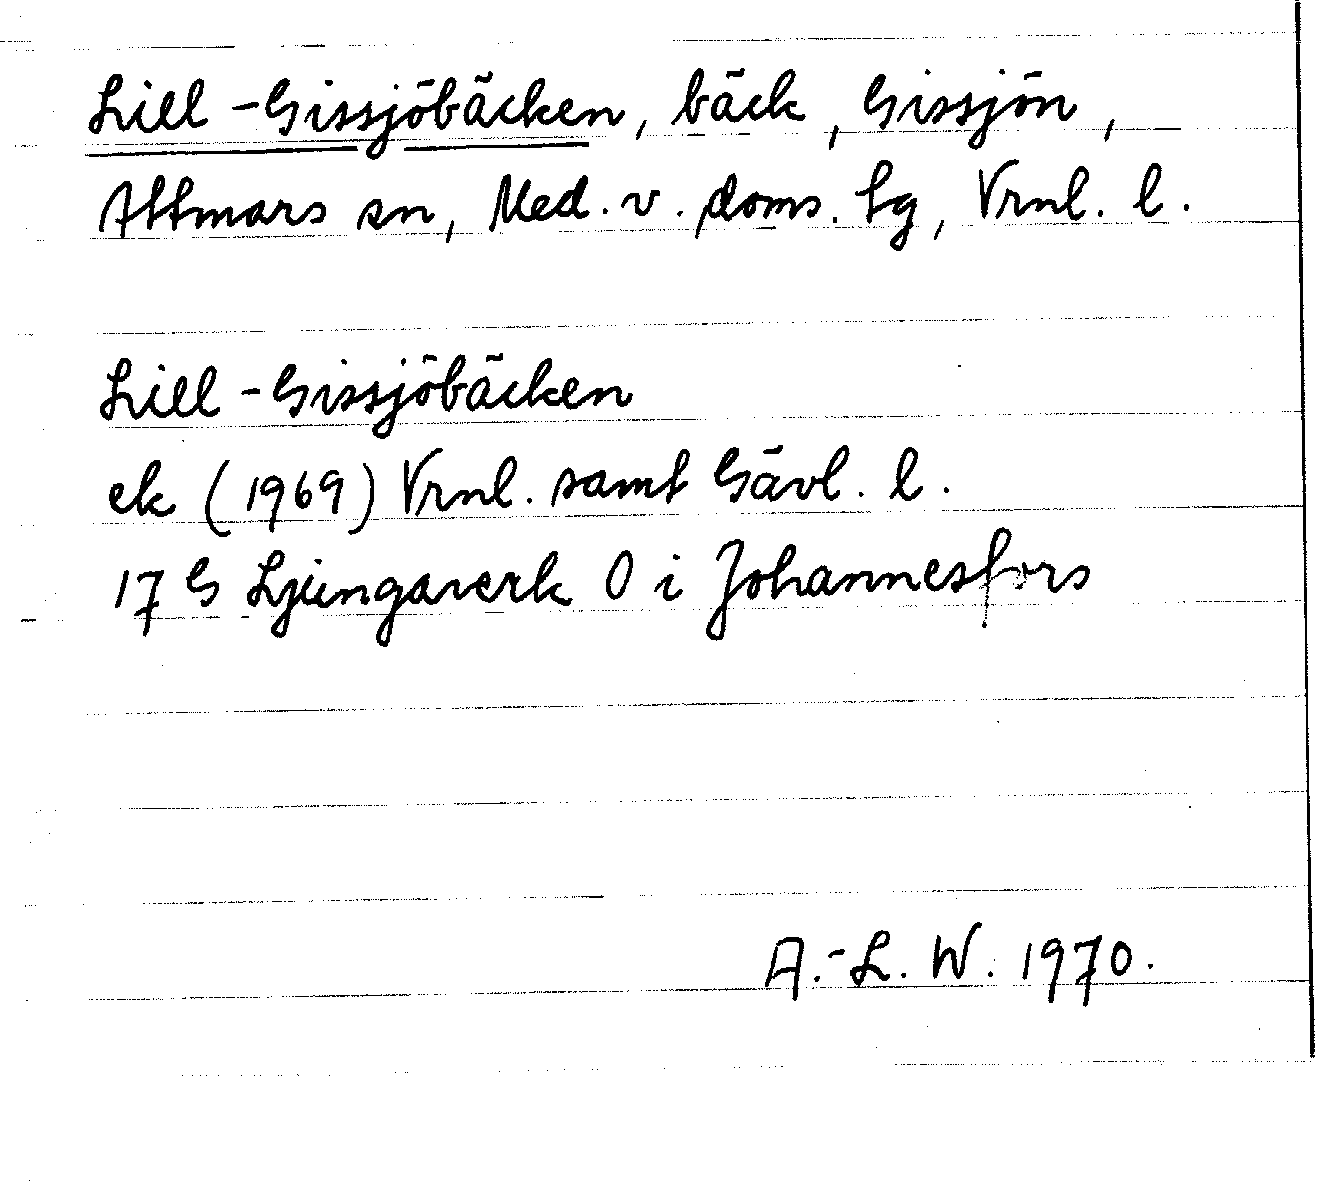 Lill-Gissjöbäcken, bäck, Gissjön,
Attmars sn, Med. v. doms. tg, Vrnl. l.
Lill-Gissjöbäcken
ek (1969) Vrnl. samt Gävl. l.
17 G Ljungaverk O i Johannesfors
A.-L. W. 1970.